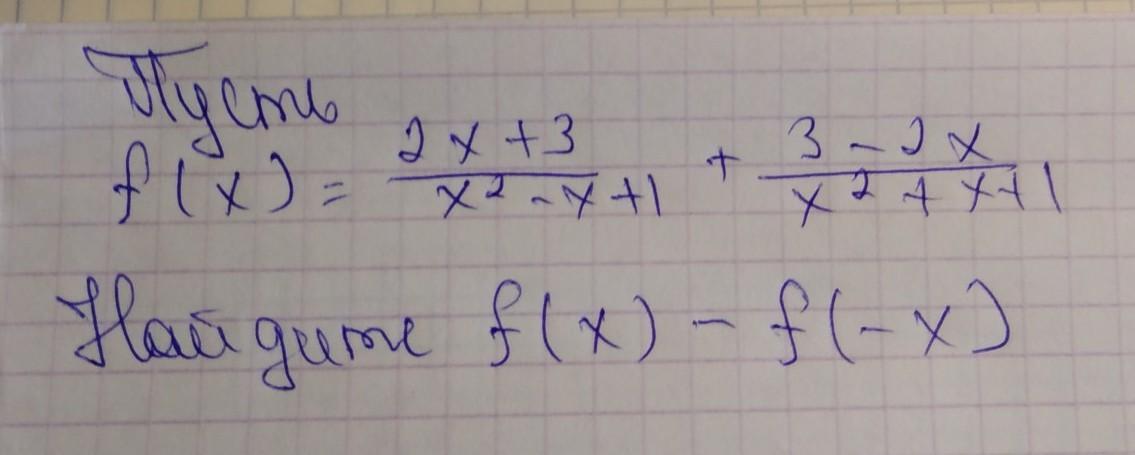 Пусть
f(x) = \frac{2x+3}{x^2-x+1} + \frac{3-2x}{x^2+x+1}
Найдите f(x) - f(-x)